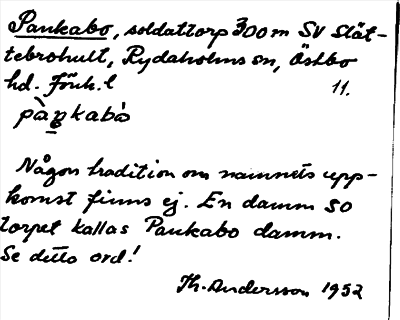 Pankabo, soldattorp 300 m SV Slät-
tebrohult, Rydaholms sn, Östbo
hd. Jönk. l
11.
pàŋkabò
Någon tradition om namnets upp-
komst finns ej. En damm SO
torpet kallas Pankabo damm.
Se detto ord!
Th. Andersson 1952